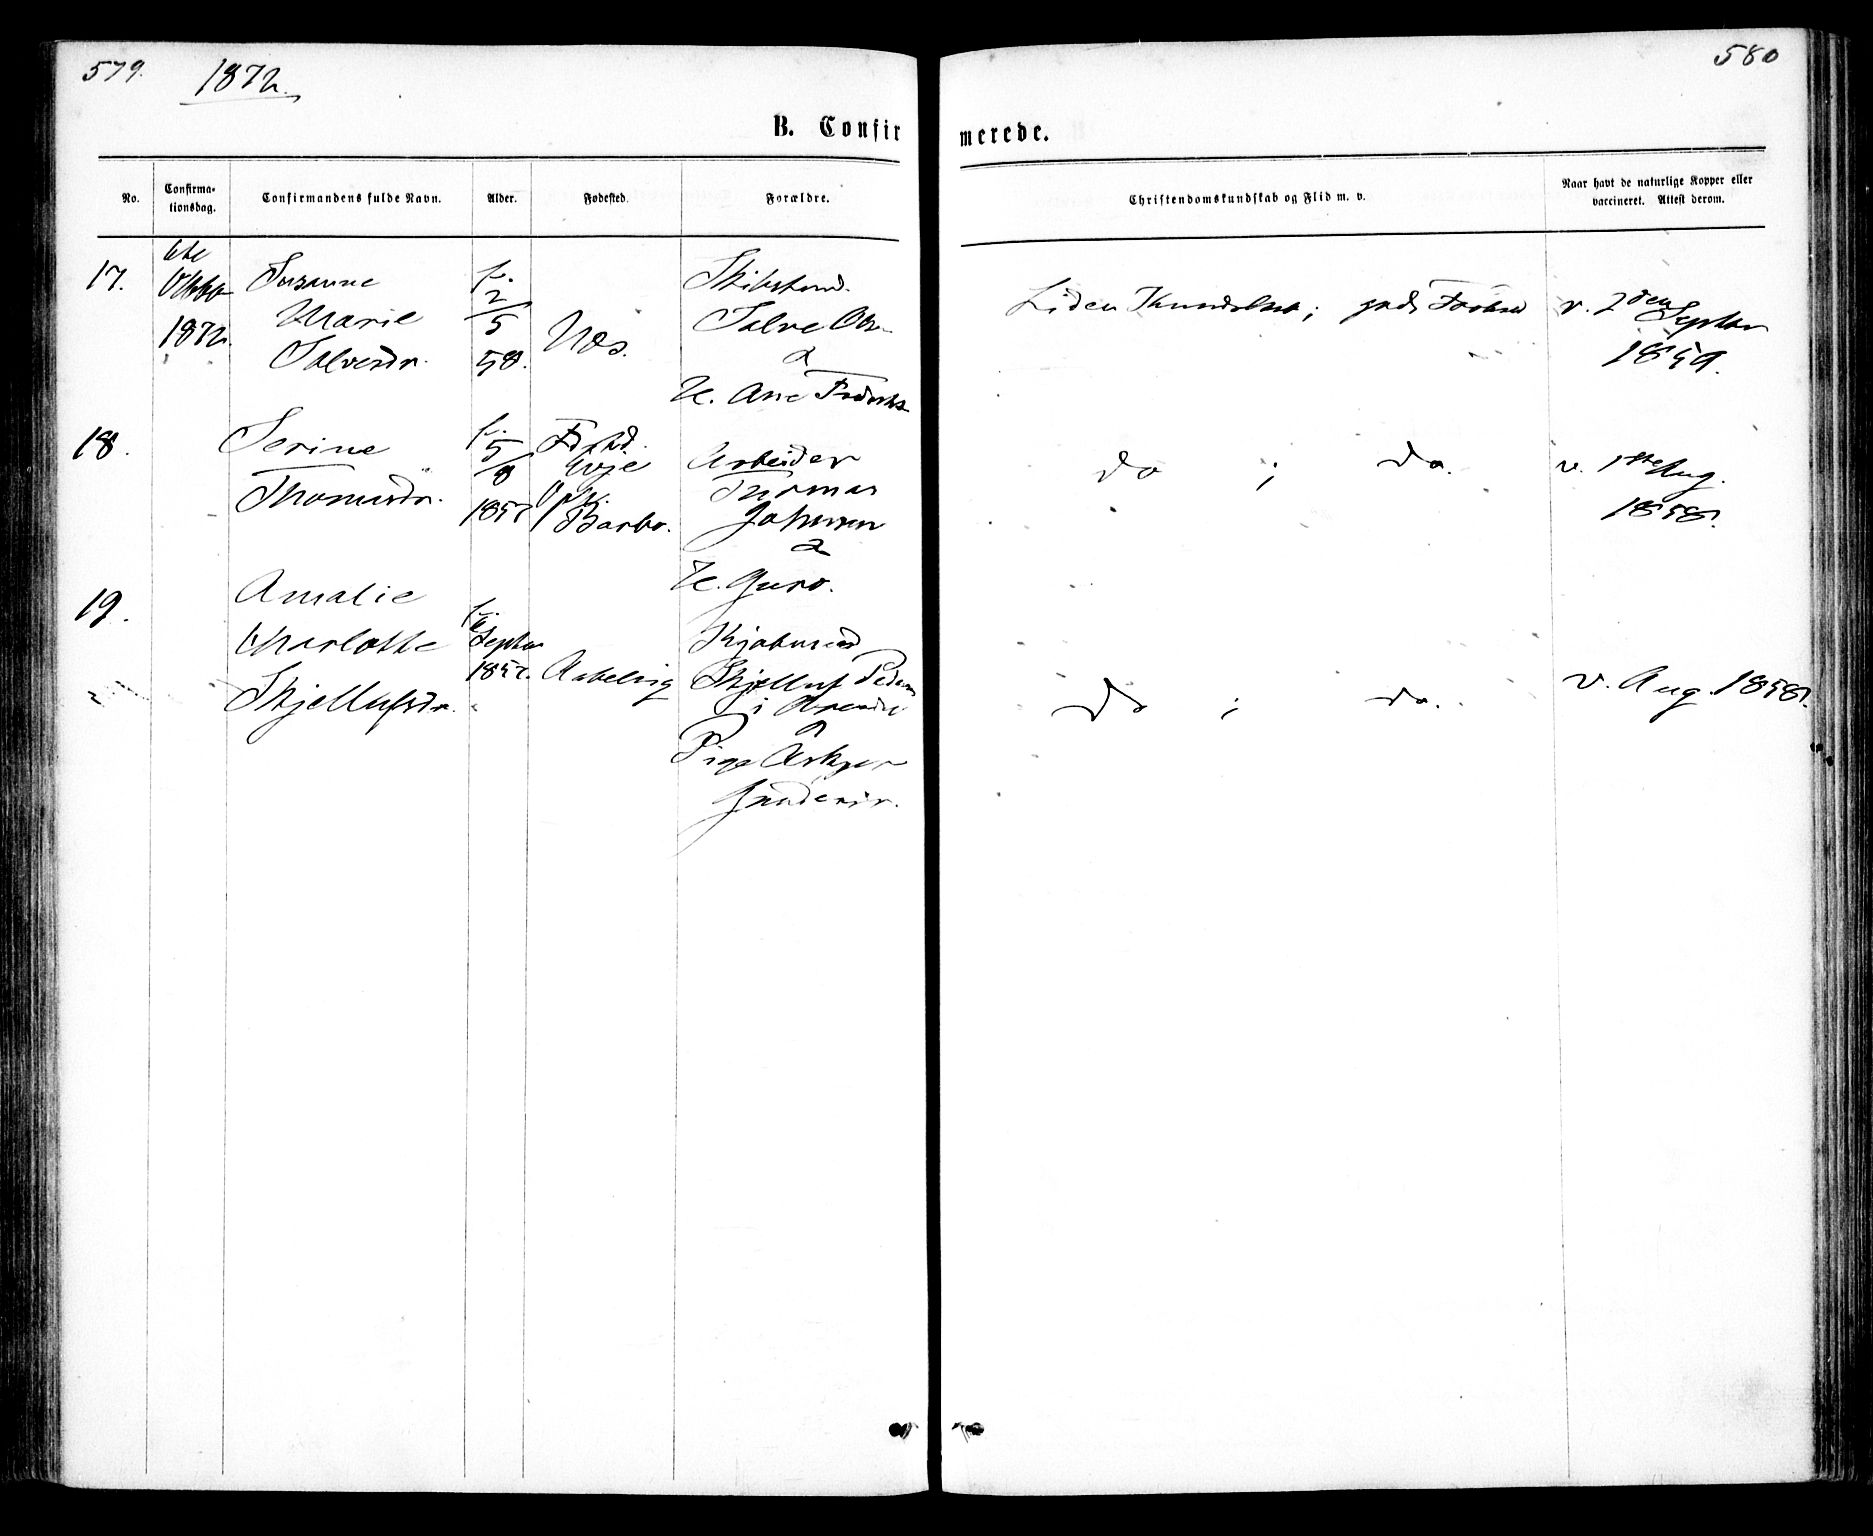 579.
1872.
580
B. Confir
merede.
No.
Confirma-
tionsdag.
Confirmandens fulde Navn.
Alder.
Fødested.
Forældre.
Christendomskundskab og Flid m. v.
Naar havt de naturlige Kopper eller
vaccineret. Attest derom.
17.
6te
Oktbr
1872.
Susanne
Marie
Salvesdr.
f.
2/5
58.
Næs.
Salve
&
H. Ane
Liden Kundskab; god
v. 2den
Septbr
1859.
18.
Serine
Thomasdr.
f.
5/8
1857
Evje
Barbo.
Arbeider
Thomas
Johnsen
&
H. Guro.
do ; do.
v. 1ste Aug.
1858.
19.
Amalie
Charlotte
Skjellufsdr.
f.
Septbr
1857.
Kjøbmand
Skjelluf
i Arendal
&
Pige
do ; do.
v. Aug. 1858.